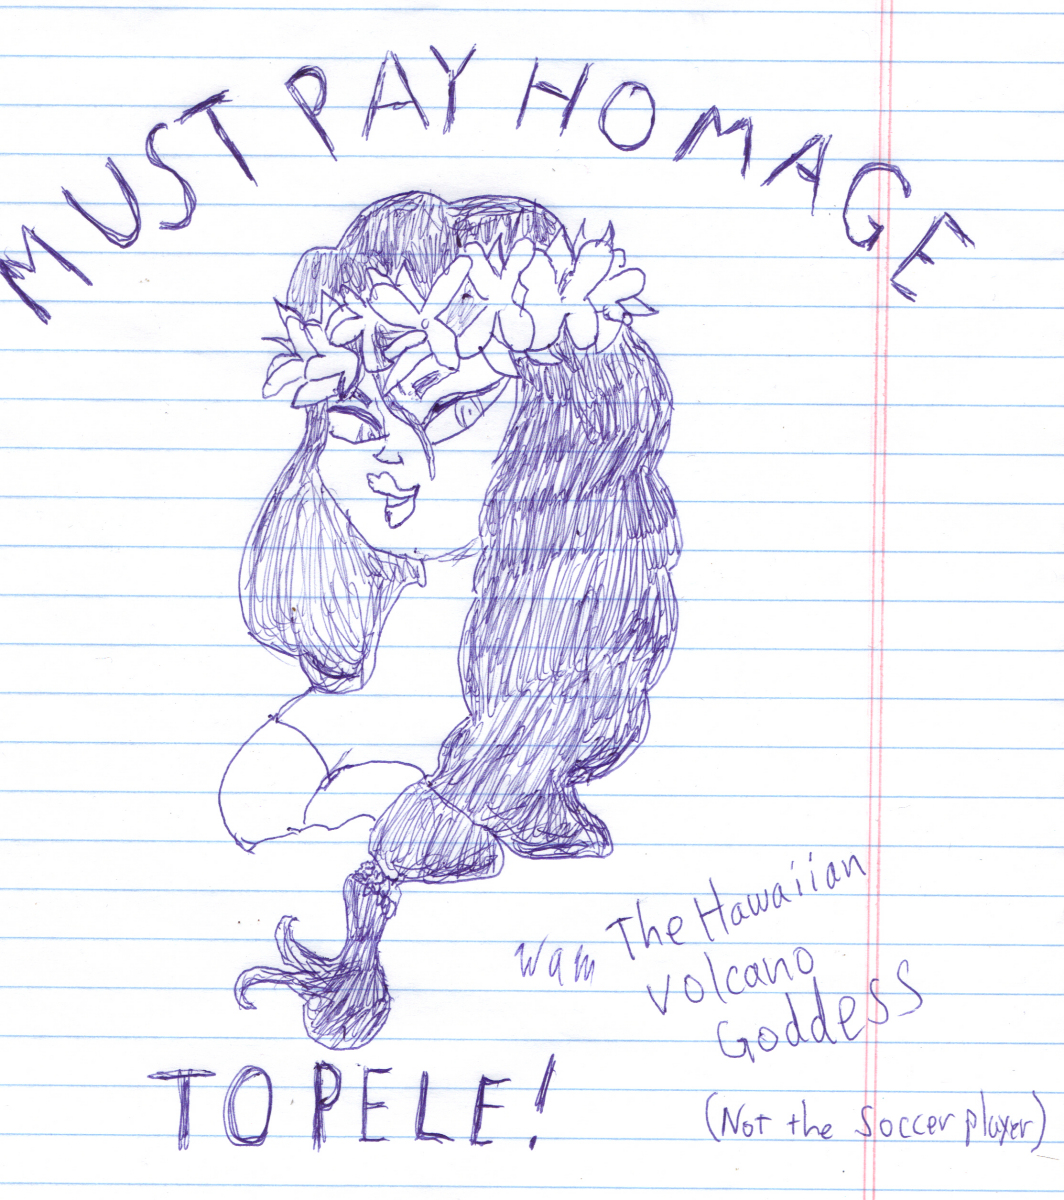 MUST PAY HOMAGE
wam
The Hawaiian
Volcano
Goddess
TO PELE!
(Not the Soccer player)